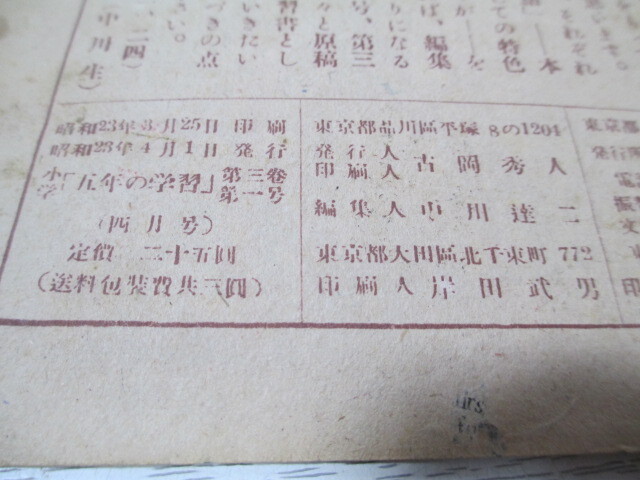 それぞれ
本
ての特色
が――を
ば、編集
りになる
号、第三
々と原稿
習書とし
いきたい
づきの点
さい。
二四)
(中川生)
昭和23年3月25日 印刷
昭和23年4月1日 発行
小学「五年の学習」第三卷第一号
(四月号)
定價 二十五圓
(送料包装費共三圓)
東京都品川區平塚8の1204
発行人
印刷人 古岡秀人
編集人 中川達二
東京都大田區北千束町772
印刷人 岸田武男
東京都
発行所
印